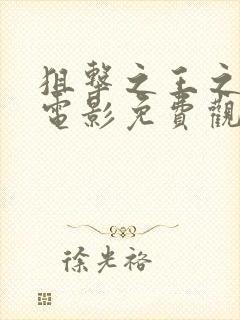 狙擊之王之
電影免費觀
徐光裕